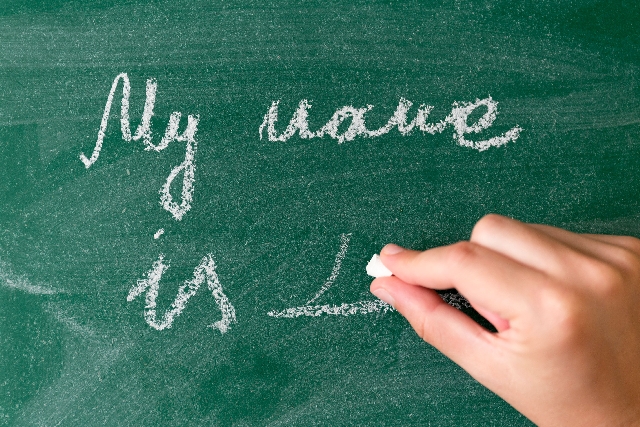 My name
is